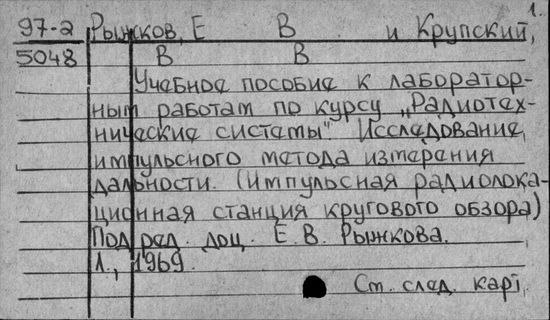 1.
97-2 Рыжков, Е В и Крупский,
5048 В В
Учебное пособие к лаборатор-
ным работам по курсу „Радиотех-
нические системы" Исследование
импульсного метода измерения
дальности. (Импульсная радиолока-
ционная станция кругового обзора)
Под ред. доц. Е. В. Рыжкова.
Л., 1969.
Ст. след. карт.